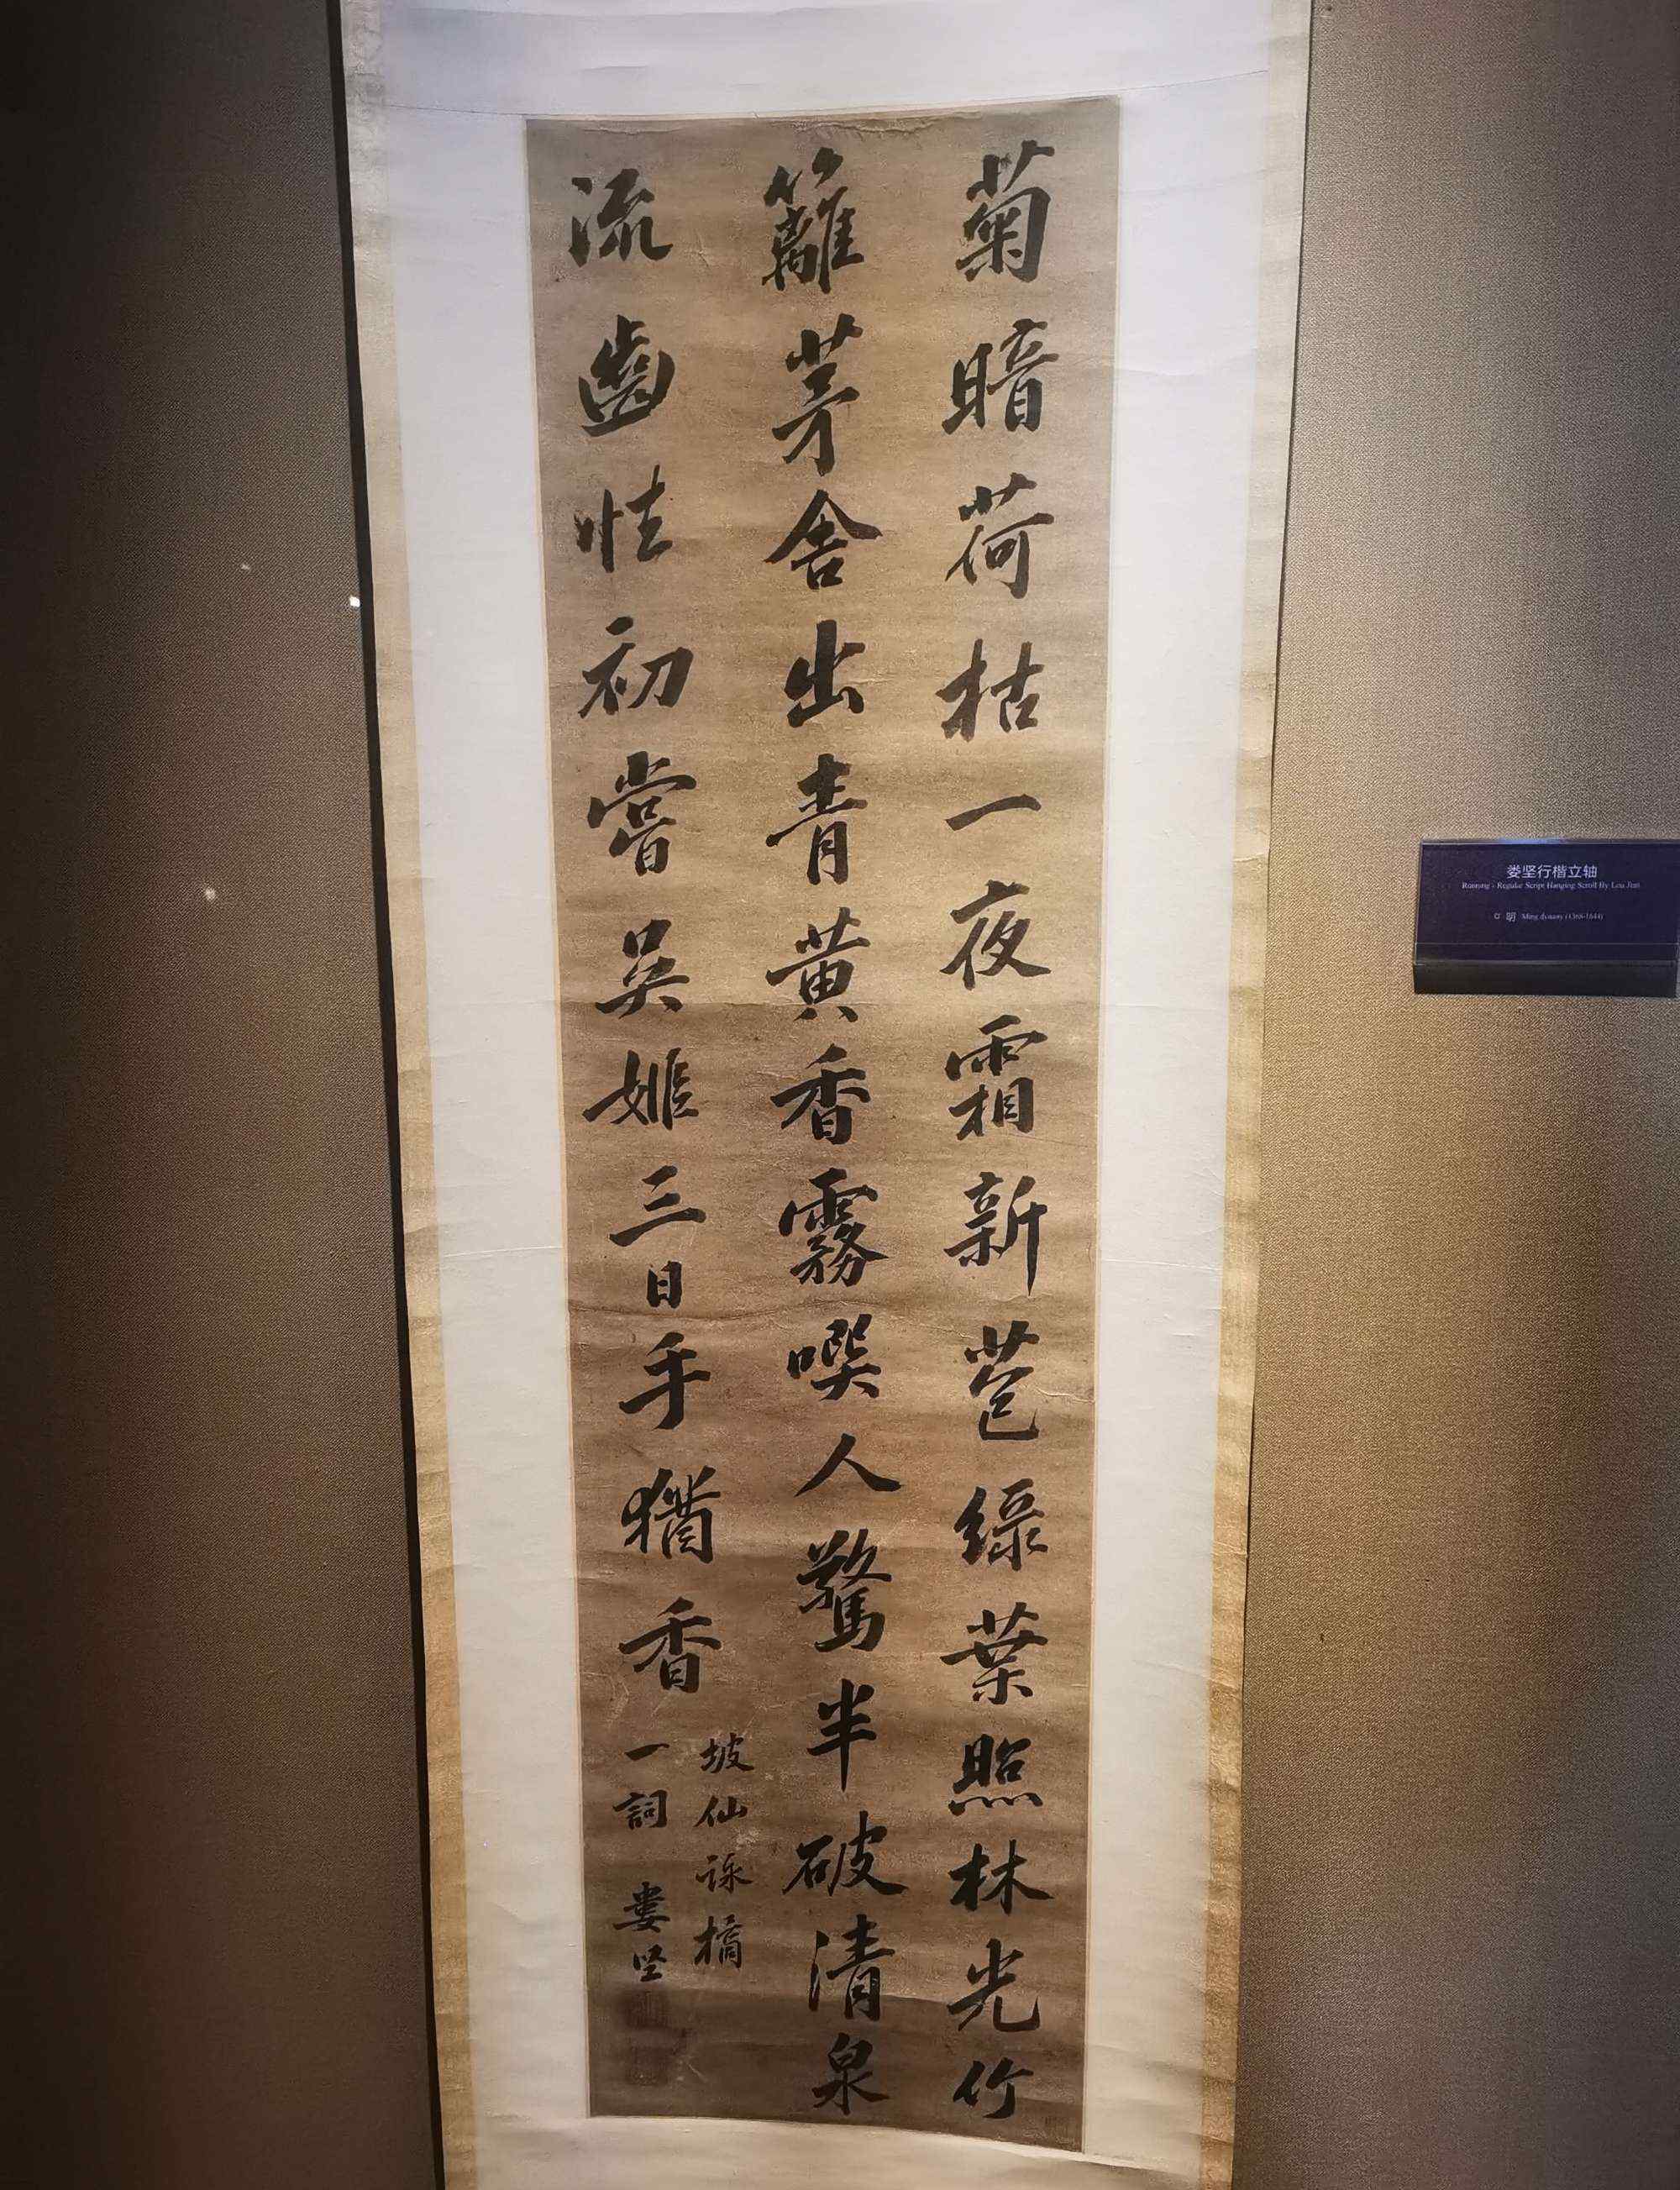 菊暗荷枯一夜霜新苞綠葉照林光竹
籬茅舍出青黃香霧噀人驚半破清泉
流齒怯初嘗吳姬三日手猶香
坡仙詠橘
一詞 婁堅
娄坚行楷立轴
Running - Regular Script Hanging Scroll By Lou Jian
明 Ming dynasty (1368-1644)